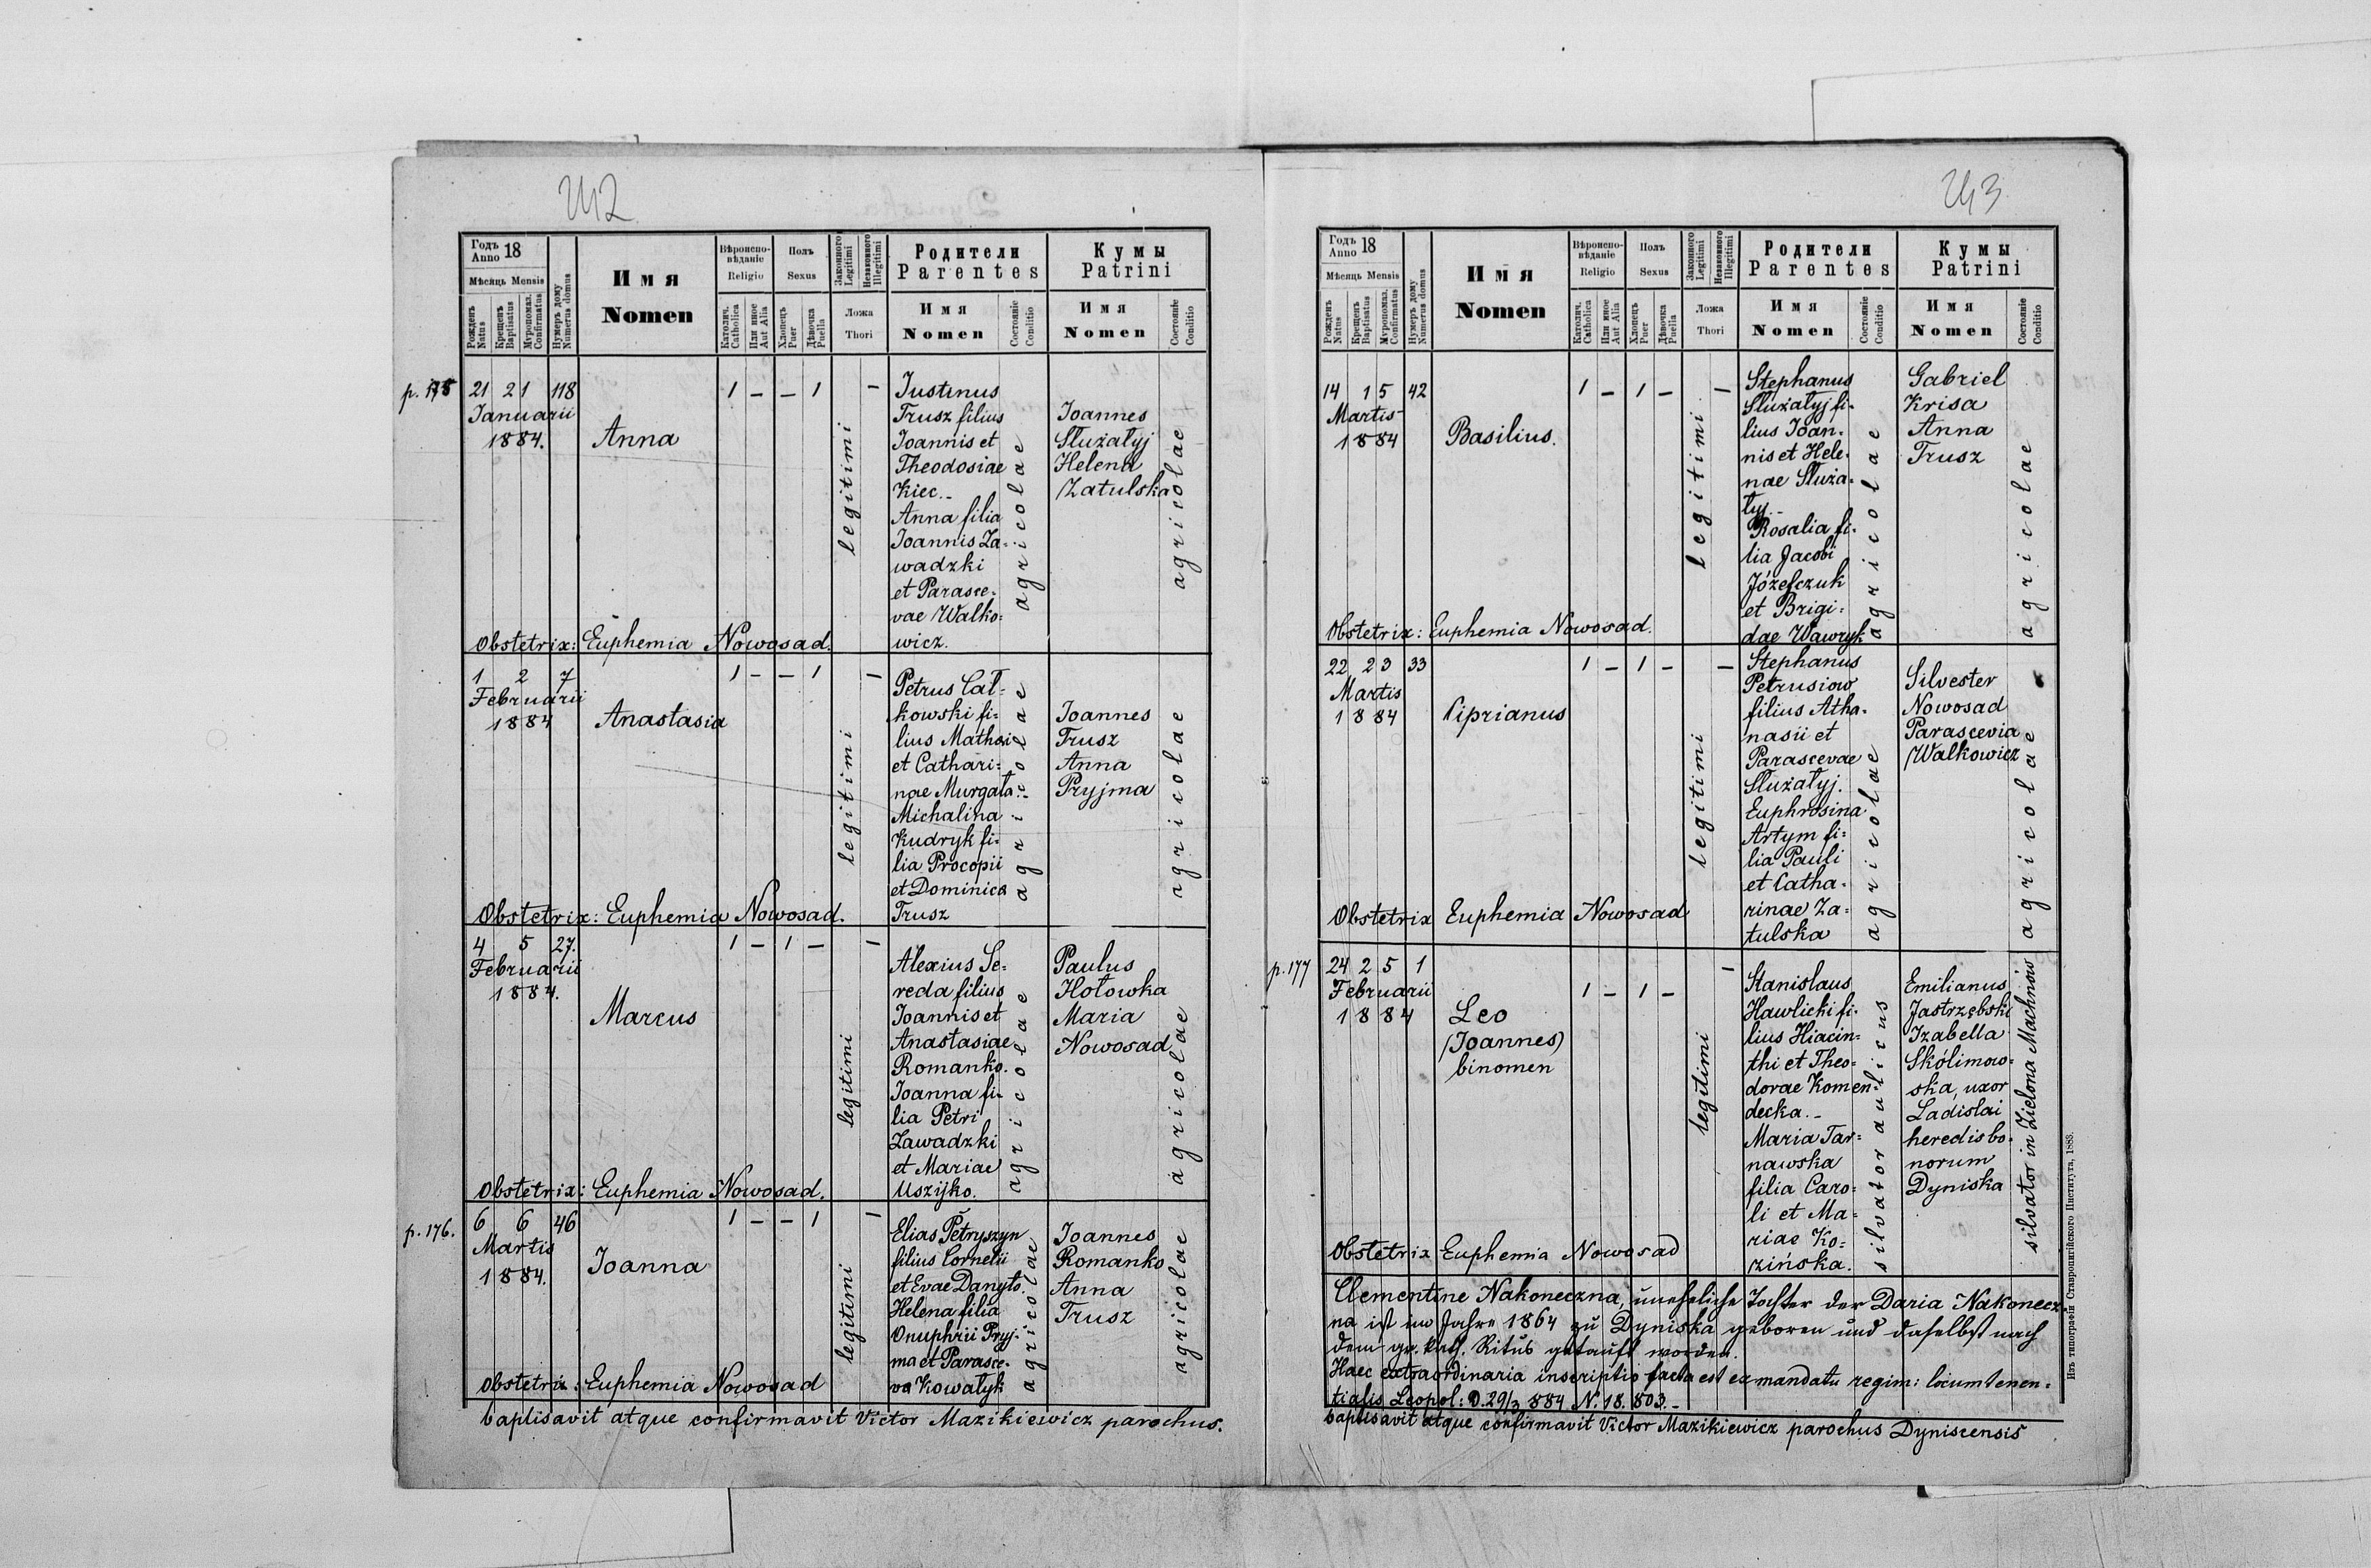 242
Годъ 18
Anno
Мѣсяць Mensis
Рожденъ
Natus
Крещенъ
Baptisatus
Мѵропомаз.
Confirmatus
Нумеръ дому
Numerus domus
Имя
Nomen
Вѣроиспо-
вѣданіе
Religio
Католич.
Catholica
Или иное
Aut Alia
Полъ
Sexus
Хлопецъ
Puer
Дѣвочка
Puella
Законного
Legitimi
Незаконного
Illegitimi
Ложа
Thori
Родители
Parentes
Имя
Nomen
Состояніе
Conditio
Кумы
Patrini
Имя
Nomen
Состояніе
Conditio
p. 175
21 21 118
Januarii
1884.
Anna
1 – – 1 –
legitimi
Justinus
Trusz filius
Joannis et
Theodosiae
Kiec.-
Anna filia
Joannis Za-
wadzki
et Parasce-
vae Walko-
wicz.
agricolae
Joannes
Służałyj
Helena
Zatulska
agricolae
Obstetrix: Euphemia Nowosad.
1 2 7
Februarii
1884
Anastasia
1 – – 1 –
legitimi
Petrus Cał-
kowski fi-
lius Mathei
et Cathari-
nae Murgała.-
Michalina
Kudryk fi-
lia Procopii
et Dominica
Trusz
agricolae
Joannes
Trusz
Anna
Pryjma
agricolae
Obstetrix: Euphemia Nowosad.
4 5 27.
Februarii
1884.
Marcus
1 – 1 – –
legitimi
Alexius Se-
reda filius
Joannis et
Anastasiae
Romanko.
Joanna fi-
lia Petri
Zawadzki
et Mariae
Uszijko.
agricolae
Paulus
Hołowka
Maria
Nowosad
agricolae
Obstetrix: Euphemia Nowosad.
p. 176.
6 6 46
Martis
1884.
Joanna
1 – – 1 1
legitimi
Elias Petryszyn
filius Cornelii
et Evae Danyło.
Helena filia
Onuphrii Pryj-
ma et Parasce-
va Kowalyk
agricolae
Joannes
Romanko
Anna
Trusz
agricolae
Obstetrix: Euphemia Nowosad
baptisavit atque confirmavit Victor Mazikiewicz parochus.
243
Годъ 18
Anno
Мѣсяць Mensis
Рожденъ
Natus
Крещенъ
Baptisatus
Мѵропомаз.
Confirmatus
Нумеръ дому
Numerus domus
Имя
Nomen
Вѣроиспо-
вѣданіе
Religio
Католич.
Catholica
Или иное
Aut Alia
Полъ
Sexus
Хлопецъ
Puer
Дѣвочка
Puella
Законного
Legitimi
Незаконного
Illegitimi
Ложа
Thori
Родители
Parentes
Имя
Nomen
Состояніе
Conditio
Кумы
Patrini
Имя
Nomen
Состояніе
Conditio
14 15 42
Martis
1884
Basilius.
1 – 1 – –
legitimi
Stephanus
Służałyj fi-
lius Joan-
nis et Hele-
nae Służa-
łyj.-
Rosalia fi-
lia Jacobi
Józefczuk
et Brigi-
dae Wawryk
agricolae
Gabriel
Krisa
Anna
Trusz
agricolae
Obstetrix: Euphemia Nowosad.
22 23 33
Martis
1884
Ciprianus
1 – 1 – –
legitimi
Stephanus
Petrusiow
filius Atha-
nasii et
Parascevae
Służałyj.
Euphrosina
Artym fi-
lia Pauli
et Catha-
rinae Za-
tulska
agricolae
Silvester
Nowosad
Parascevia
Walkowicz
agricolae
Obstetrix Euphemia Nowosad
p. 177
24 25 1
Februarii
1884
Leo
(Joannes)
binomen
1 – 1 – –
legitimi
Stanislaus
Hawlicki fi-
lius Hiacin-
thi et Theo-
dorae Komen-
decka.-
Maria Tar-
nawska
filia Caro-
li et Ma-
riae Ko-
zińska.
silvator aulicus
Emilianus
Jastrzębski
Izabella
Skólimow-
ska, uxor
Ladislai
heredis bo-
norum
Dyniska
silvator in Zielona Machnów
Obstetrix Euphemia Nowosad
Clementine Nakoneczna, uneheliche Tochter der Daria Nakonecz-
na ist im Jahre 1864 zu Dyniska geboren und daselbst nach
dem gr. kath. Ritus getauft worden.
Haec extraordinaria inscriptio facta est ex mandatu regim: locumtenen-
tialis Leopol: D. 29/3 884 N. 18.803.-
baptisavit atque confirmavit Victor Mazikiewicz parochus Dyniscensis
Изъ типографіи Ставропигійского Института, 1883.